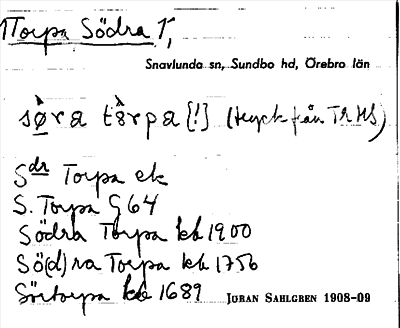 Torpa Södra
Snavlunda sn, Sundbo hd, Örebro län
sø̀ra tàrpa [!] (tryck från TRHS)
Sdr Torpa ek
S. Torpa G 64
Södra Torpa kb 1900
Sö(d)ra Torpa kb 1750
Sörtorpa kb 1689
JÖRAN SAHLGREN 1908-09